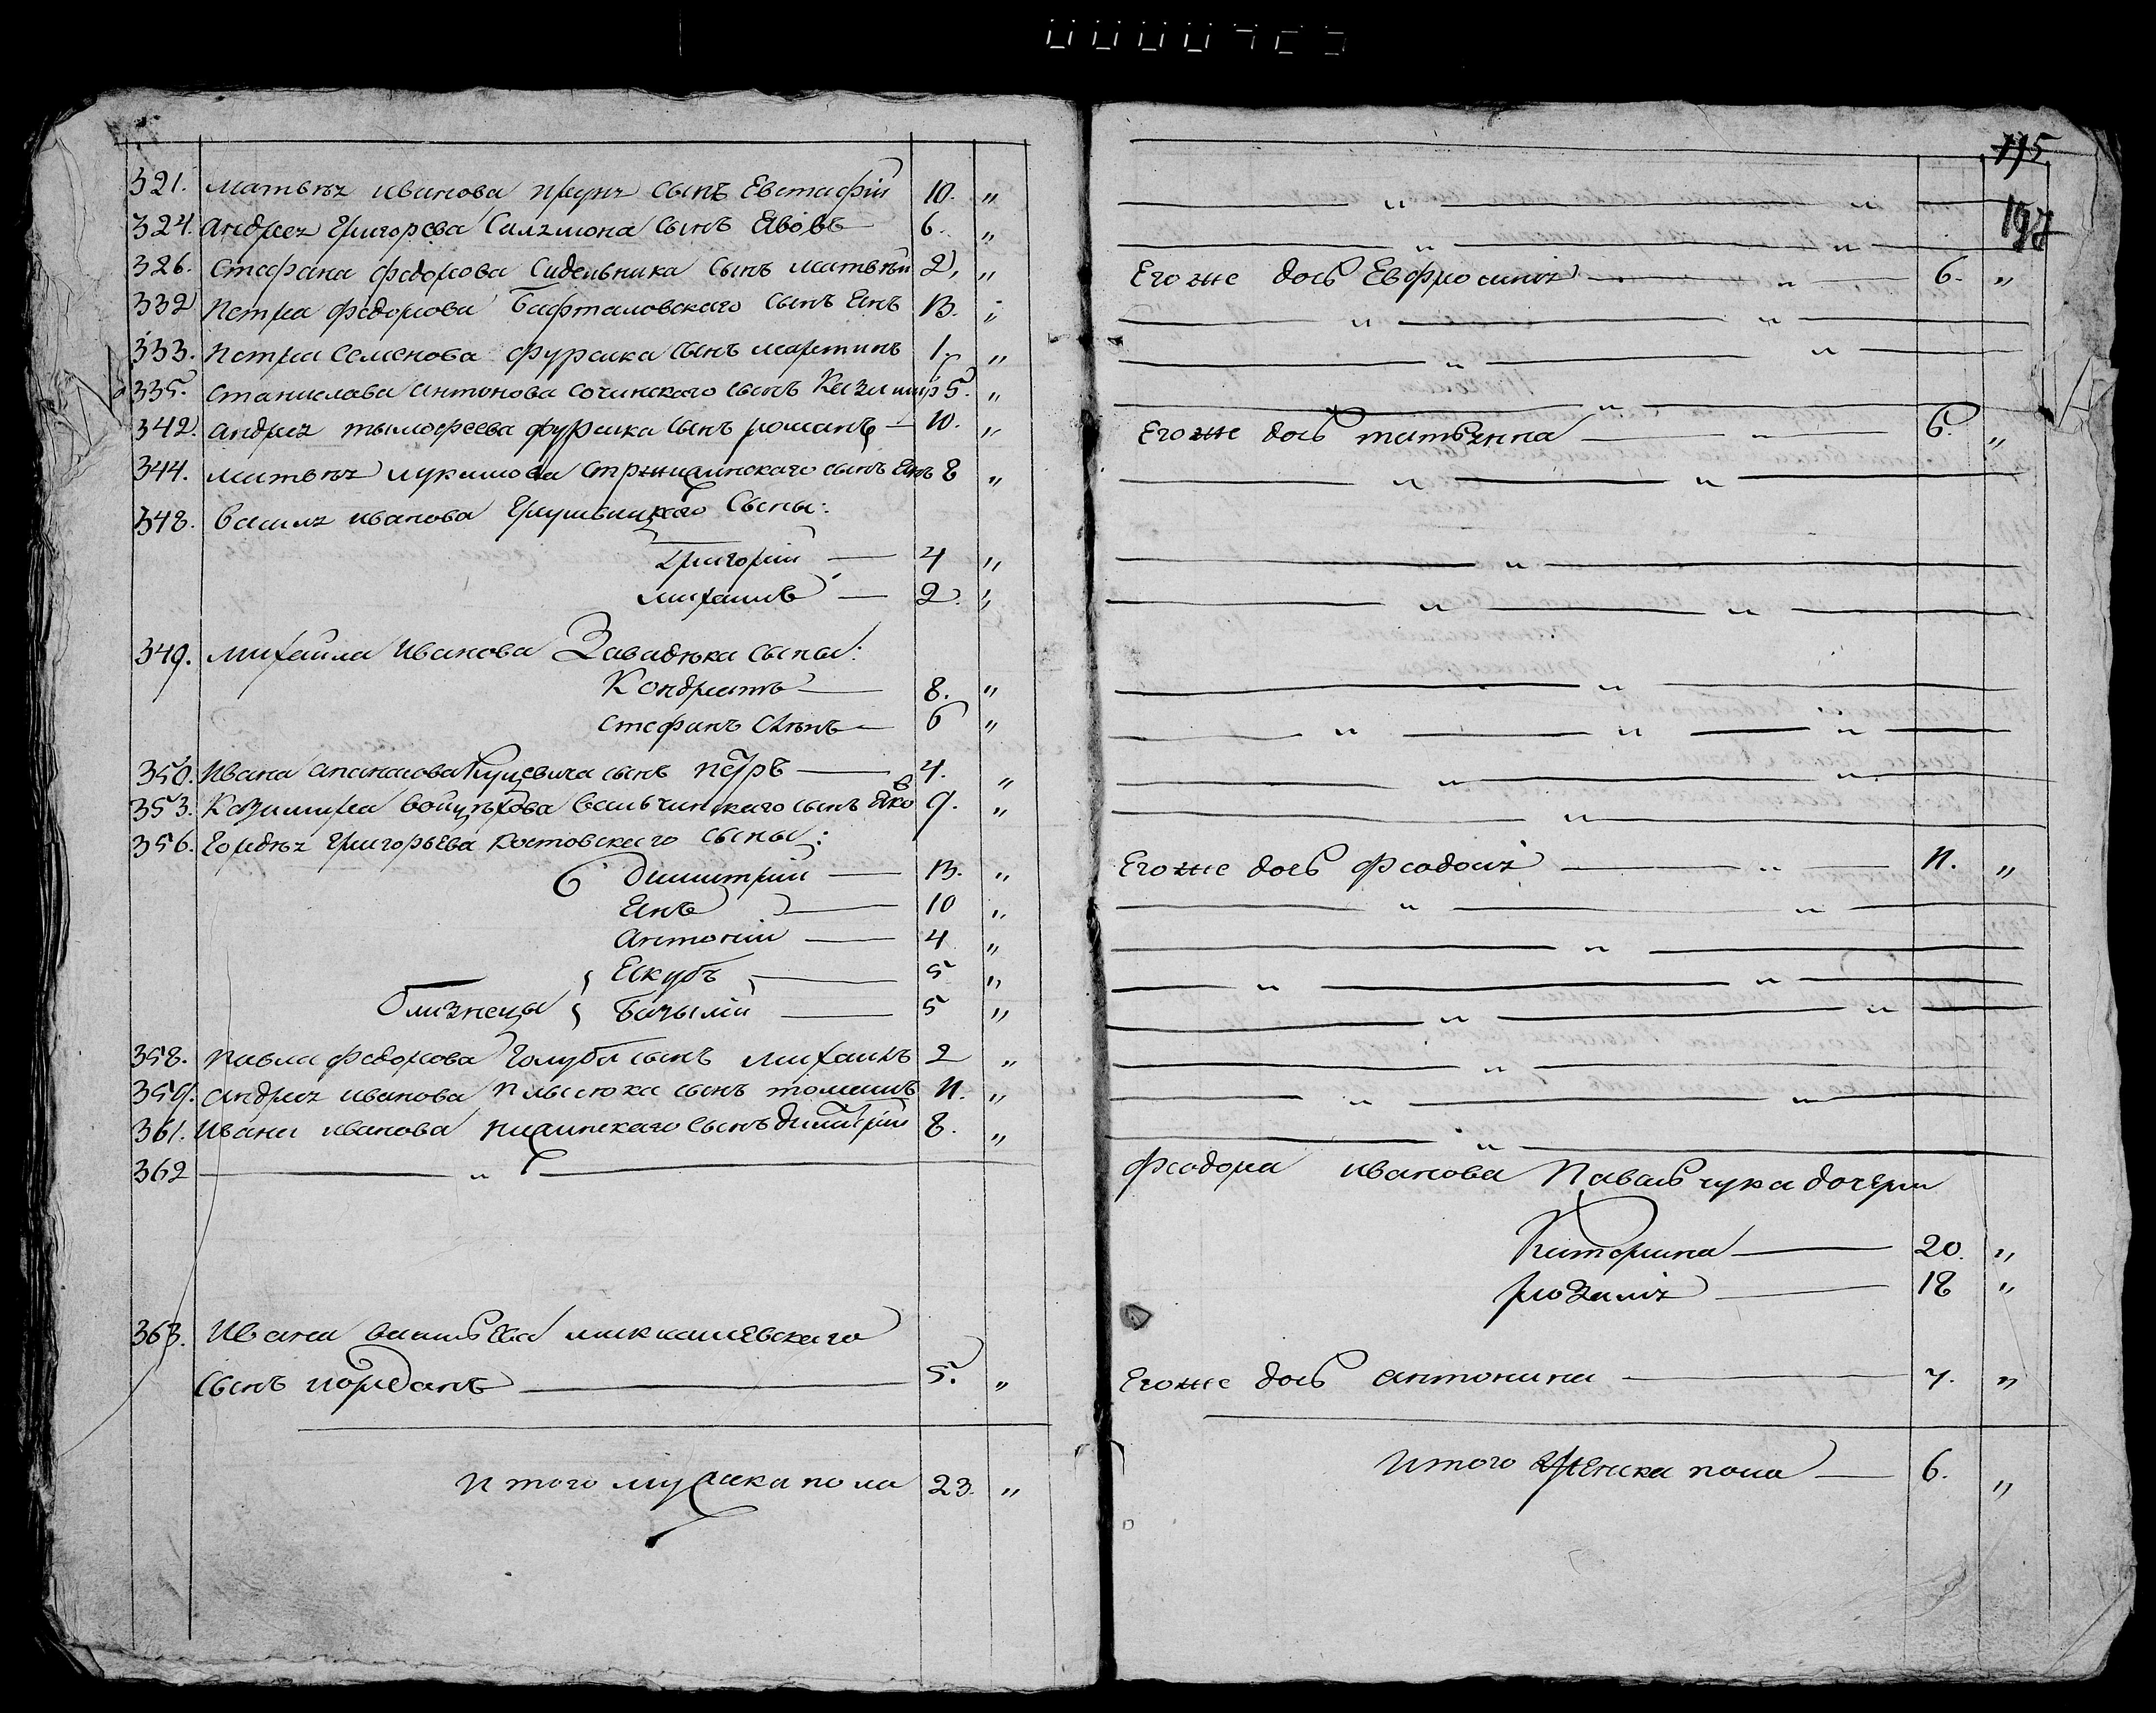 321. Матвея Иванова сынъ Евстафій 10. „
324. Андрея Григорева Саламона сынъ Яковъ 6. „
326. Стефана Федорова Сидельника сынъ Матвѣй 2. „
332 Петра Федорова Бафталовского сынъ Янъ 13. „
333. Петра Семенова Фурсика сынъ Мартинъ 1. „
335. Станислава Антонова Сочинского сынъ Казимир 5. „
342. Андрея Тымофеева Фурсика сынъ Романъ 10. „
344. Матвея Лукашова сынъ Янъ 8 „
348. Василя Иванова Грушвицкого Сыны:
Григорій 4 „
Михаилъ 2. „
349. Михайла Иванова Завадюка сыны:
Кондратъ 8. „
Стефанъ сынъ 6 „
350. Ивана Апанасова Куцевича сынъ Петръ 4. „
353. Казимира Войцѣхова Вальчинского сынъ Яковъ 9. „
356. Гордея Григорьева Костовского сыны:
Димитрій 13. „
Янъ 10 „
Антоній 4 „
Якубъ 5 „
близнецы Базылій 5 „
358. Павла Федорова Голуба сынъ Михаилъ 2 „
359. Андрея Иванова Пласюка сынъ Томашъ 11. „
361. Ивана Иванова сынъ Димитрій 8. „
362 „
363. Ивана Васильева Микашевского
сынъ Іорданъ 5. „
Итого мужска пола 23. „
115
197
Егоже дочь Евфросиня „ 6. „
Егоже дочь Татьянна „ 6. „
Егоже дочь Феодося „ 11. „
Феодора Иванова Павальчука дочери
Катерина 20. „
Розалия 18 „
Егоже дочь Антонина 7. „
Итого женска пола 6. „